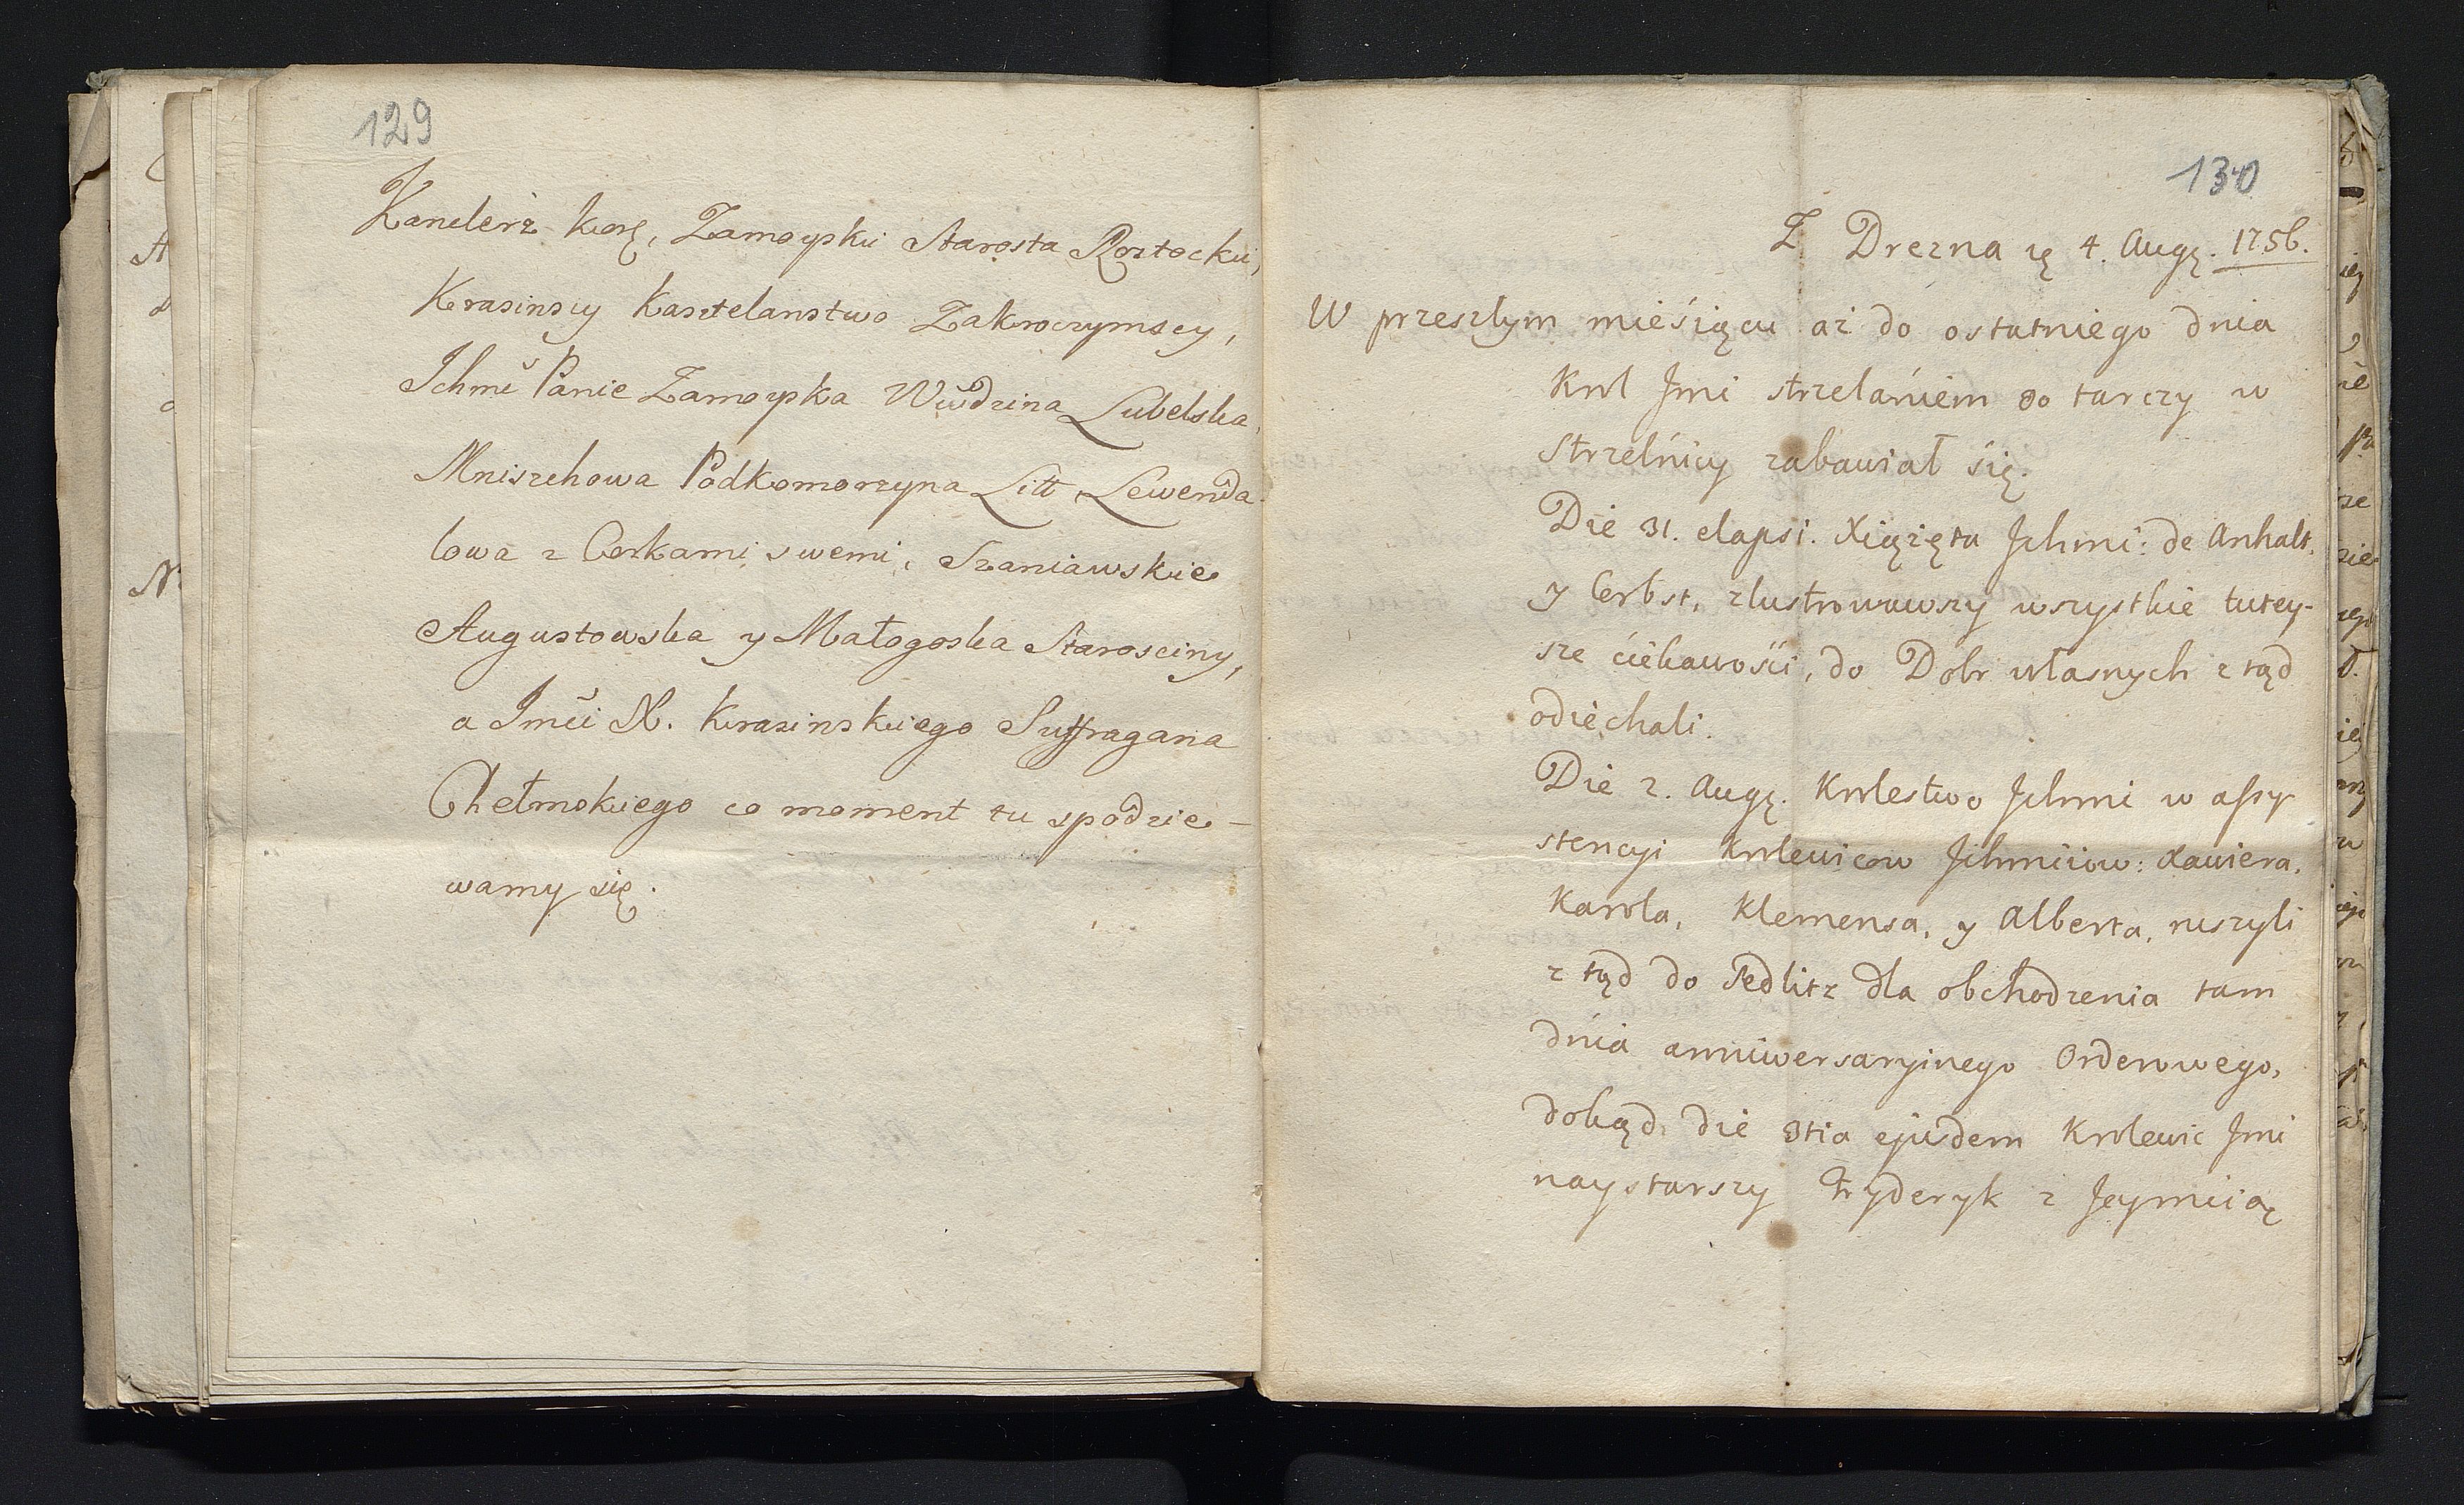 129
Kanclerz Korę, Zamoyski Starosta Rostocki,
Krasinscy Kasztelanstwo Zakroczymscy,
Ichmć Panie Zamoyska Wwdzina Lubelska,
Mniszchowa Podkomorzyna Litt Lewenda
lowa z Corkami swemi, Szaniawskie
Augustowska y Małogoska Starosciny,
a Imći X. Krasinskiego Suffragana
Chełmskiego co moment tu spodzie-
wamy się.
130
Z Drezna ię 4. Augę. 1756.
W przeszłym mieśiącu aż do ostatniego dnia
Krol Jmi strzelaniem do tarczy w
Strzelnicy zabawiał się.
Die 31. elapsi. Xiążęta Jchmi: de Anhalt.
y Cerbst, zlustrowawszy wszystkie tutey-
sze ciekawości, do Dobr własnych z tąd
odiechali.
Die 2. Augę. Krolestwo Jchmi w assy
stencyi Krolewicow Jchmiiow: Xawiera,
Karola, Klemensa, y Alberta, ruszyli
z tąd do Sedlitz dla obchodzenia tam
dnia anniwersaryinego Orderowego,
dokąd die 3tia ejusdem Krolewic Jmi
naystarszy Fryderyk z Jeymcią